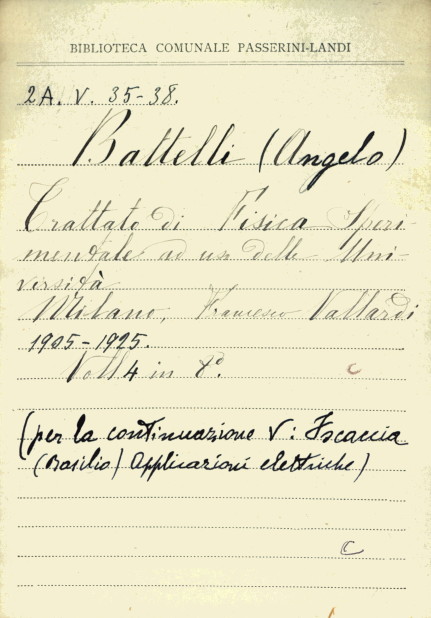 BIBLIOTECA COMUNALE PASSERINI-LANDI
2A. V. 35-38.
Battelli (Angelo)
Trattato di Fisica Speri-
mentale ad uso delle Uni-
versità
Milano, Francesco Vallardi
1905-1925.
Voll 4 in 8°.
C
(per la continuazione V: Iscaccia
(Basilio) Applicazioni elettriche)
C